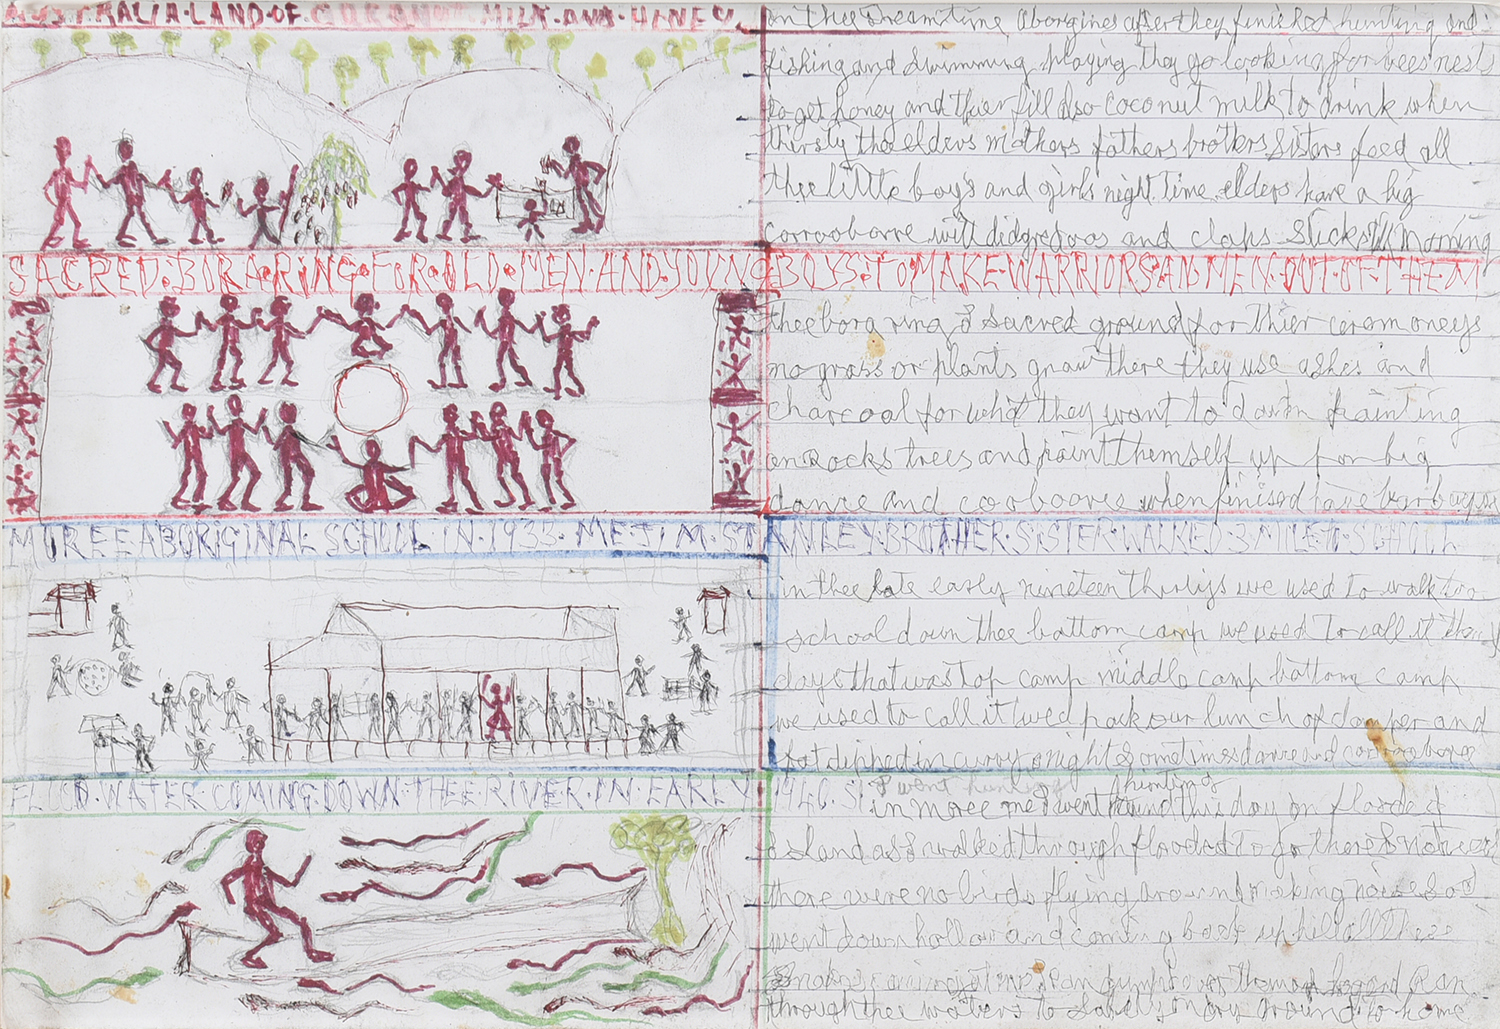 AUSTRALIA·LAND·OF·COCANUT·MILK·AND·HONEY
in thee Dreamtime aborigines after they finished hunting and
fishing and swimming playing they go looking for bees nests
to get honey and thier fill also coconut milk to drink when
thirsty the elders mothers fathers brothers sisters feed all
thee little boys and girls night time elders have a big
corrooborre with didgredoos and claps sticks till morning
SACRED·BORA·RING·FOR·OLD·MEN·AND·YOUNG·BOYS·TO·MAKE·WARRIORS·AND·MEN·OUT·OF·THEM
thee bora ring is sacred ground for thier ceromoneys
no grass or plants grow there they use ashes and
charcoal for what they want to do painting
on Rocks trees and paint themself up for big
dance and cooboores when finised have
MOREE ABORIGINAL SCHOOL IN·1933·ME JIM·STANLEY·BROTHER·SISTER·WALKED·3 MILE·TO·SCHOOL
in thee late early nineteen thirtys we used to walk to
school down thee bottom camp we used to call it
days that was top camp middle camp bottom camp
we used to call it we'd pack our lunch of damper and
fat dipped in curry night sometimes dance and
FLOOD·WATER COMING·DOWN·THEE·RIVER·IN·EARLY
I went hunting hunting
in moree me I went this day on flooded
island as I walked through flooded to go there I noticed
there were no birds flying around making noise so I
went down hollow and coming back up hill all these
snakes coming at me I ran jump on log and ran
through thee waters to land on dry ground to home